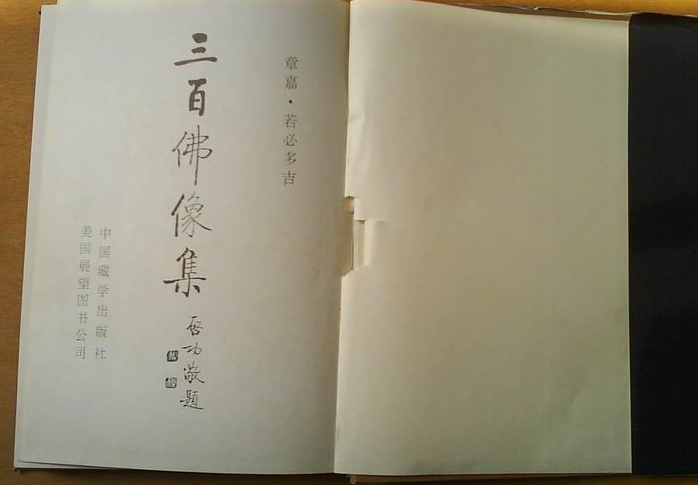 章嘉·若必多吉
三百佛像集
启功敬题
中国藏学出版社
美国展望图书公司